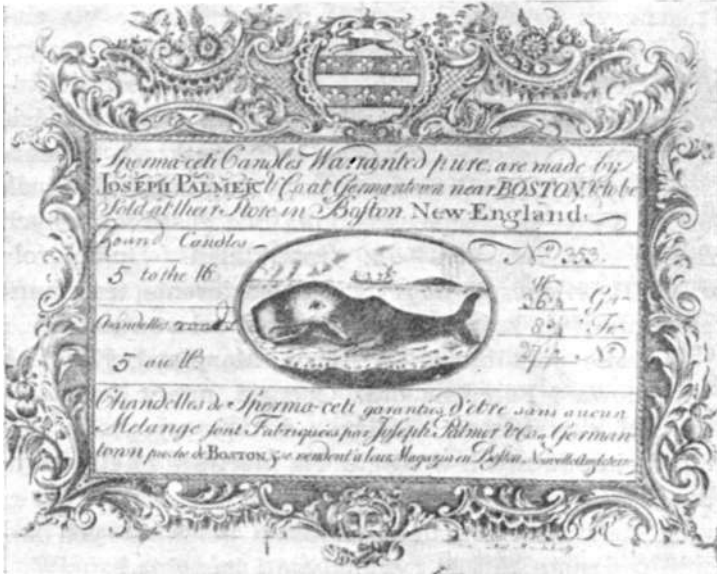 Sperma-ceti Candles Warranted pure, are made by
JOSEPH PALMER & Co. at Germantown near BOSTON & to be
Sold at their Store in Boston New-England.
Round Candles
No. 353.
5 to the lb.
36 ½ Gr
Chandelles rondes
8 ¾ Tr
5 au lb
27 ½ N
Chandelles de Sperma-ceti garanties d'etre sans aucun
Melange sont Fabriquées par Joseph Palmer & Co. a German
town proche de BOSTON, & se vendent a leur Magazin en Boston Nouvelle Angleterre